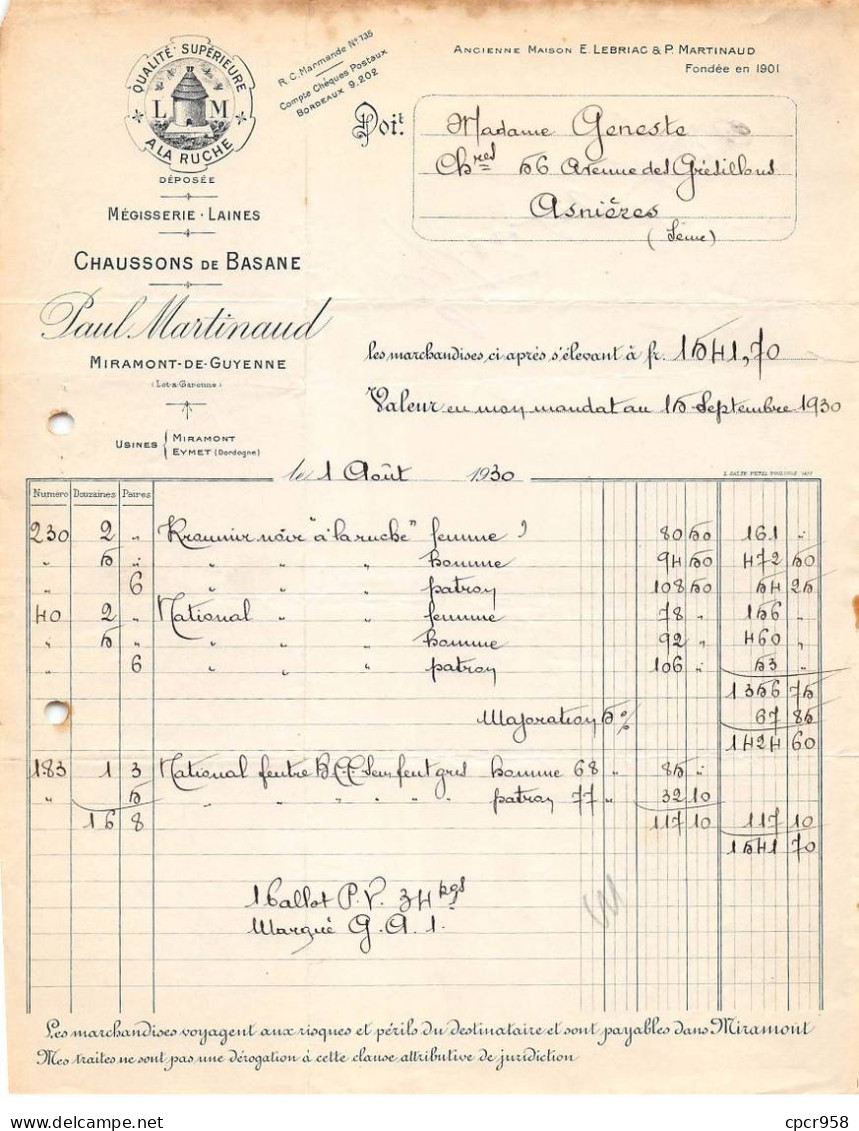 QUALITÉ SUPÉRIEURE
L M
A LA RUCHE
DÉPOSÉE
R.C. Marmande N° 135
Compte Chèques Postaux
BORDEAUX 9.202
ANCIENNE MAISON E. LEBRIAC & P. MARTINAUD
Fondée en 1901
Doit
Madame Geneste
Chres 56 Avenue des Grésillons
Asnières
(Seine)
MÉGISSERIE - LAINES
CHAUSSONS DE BASANE
Paul Martinaud
MIRAMONT-DE-GUYENNE
(Lot-&-Garonne)
USINES { MIRAMONT
EYMET (Dordogne)
les marchandises ci après s'élevant à fr. 1541,70
Valeur en mon mandat au 15 Septembre 1930
le 1 Août 1930
Numéro Douzaines Paires
230 2 " noir "à la ruche" femme 80 50 161 "
" 5 " " " " homme 94 50 472 50
6 " " " patron 108 50 54 25
40 2 " National " " femme 78 " 156 "
" 5 " " " " homme 92 " 460 "
6 " " " patron 106 " 53 "
1356 75
Majoration 5% 67 85
1424 60
183 1 3 National feutre gris homme 68 " 85 "
" 5 " " " " " patron 77 " 32 10
16 8 117 10 117 10
1541 70
1 Ballot P.V. 34 kgs
Marqué G.A.1.
Les marchandises voyagent aux risques et périls du destinataire et sont payables dans Miramont
Mes traites ne sont pas une dérogation à cette clause attributive de juridiction
delcampe.net
cpcr958